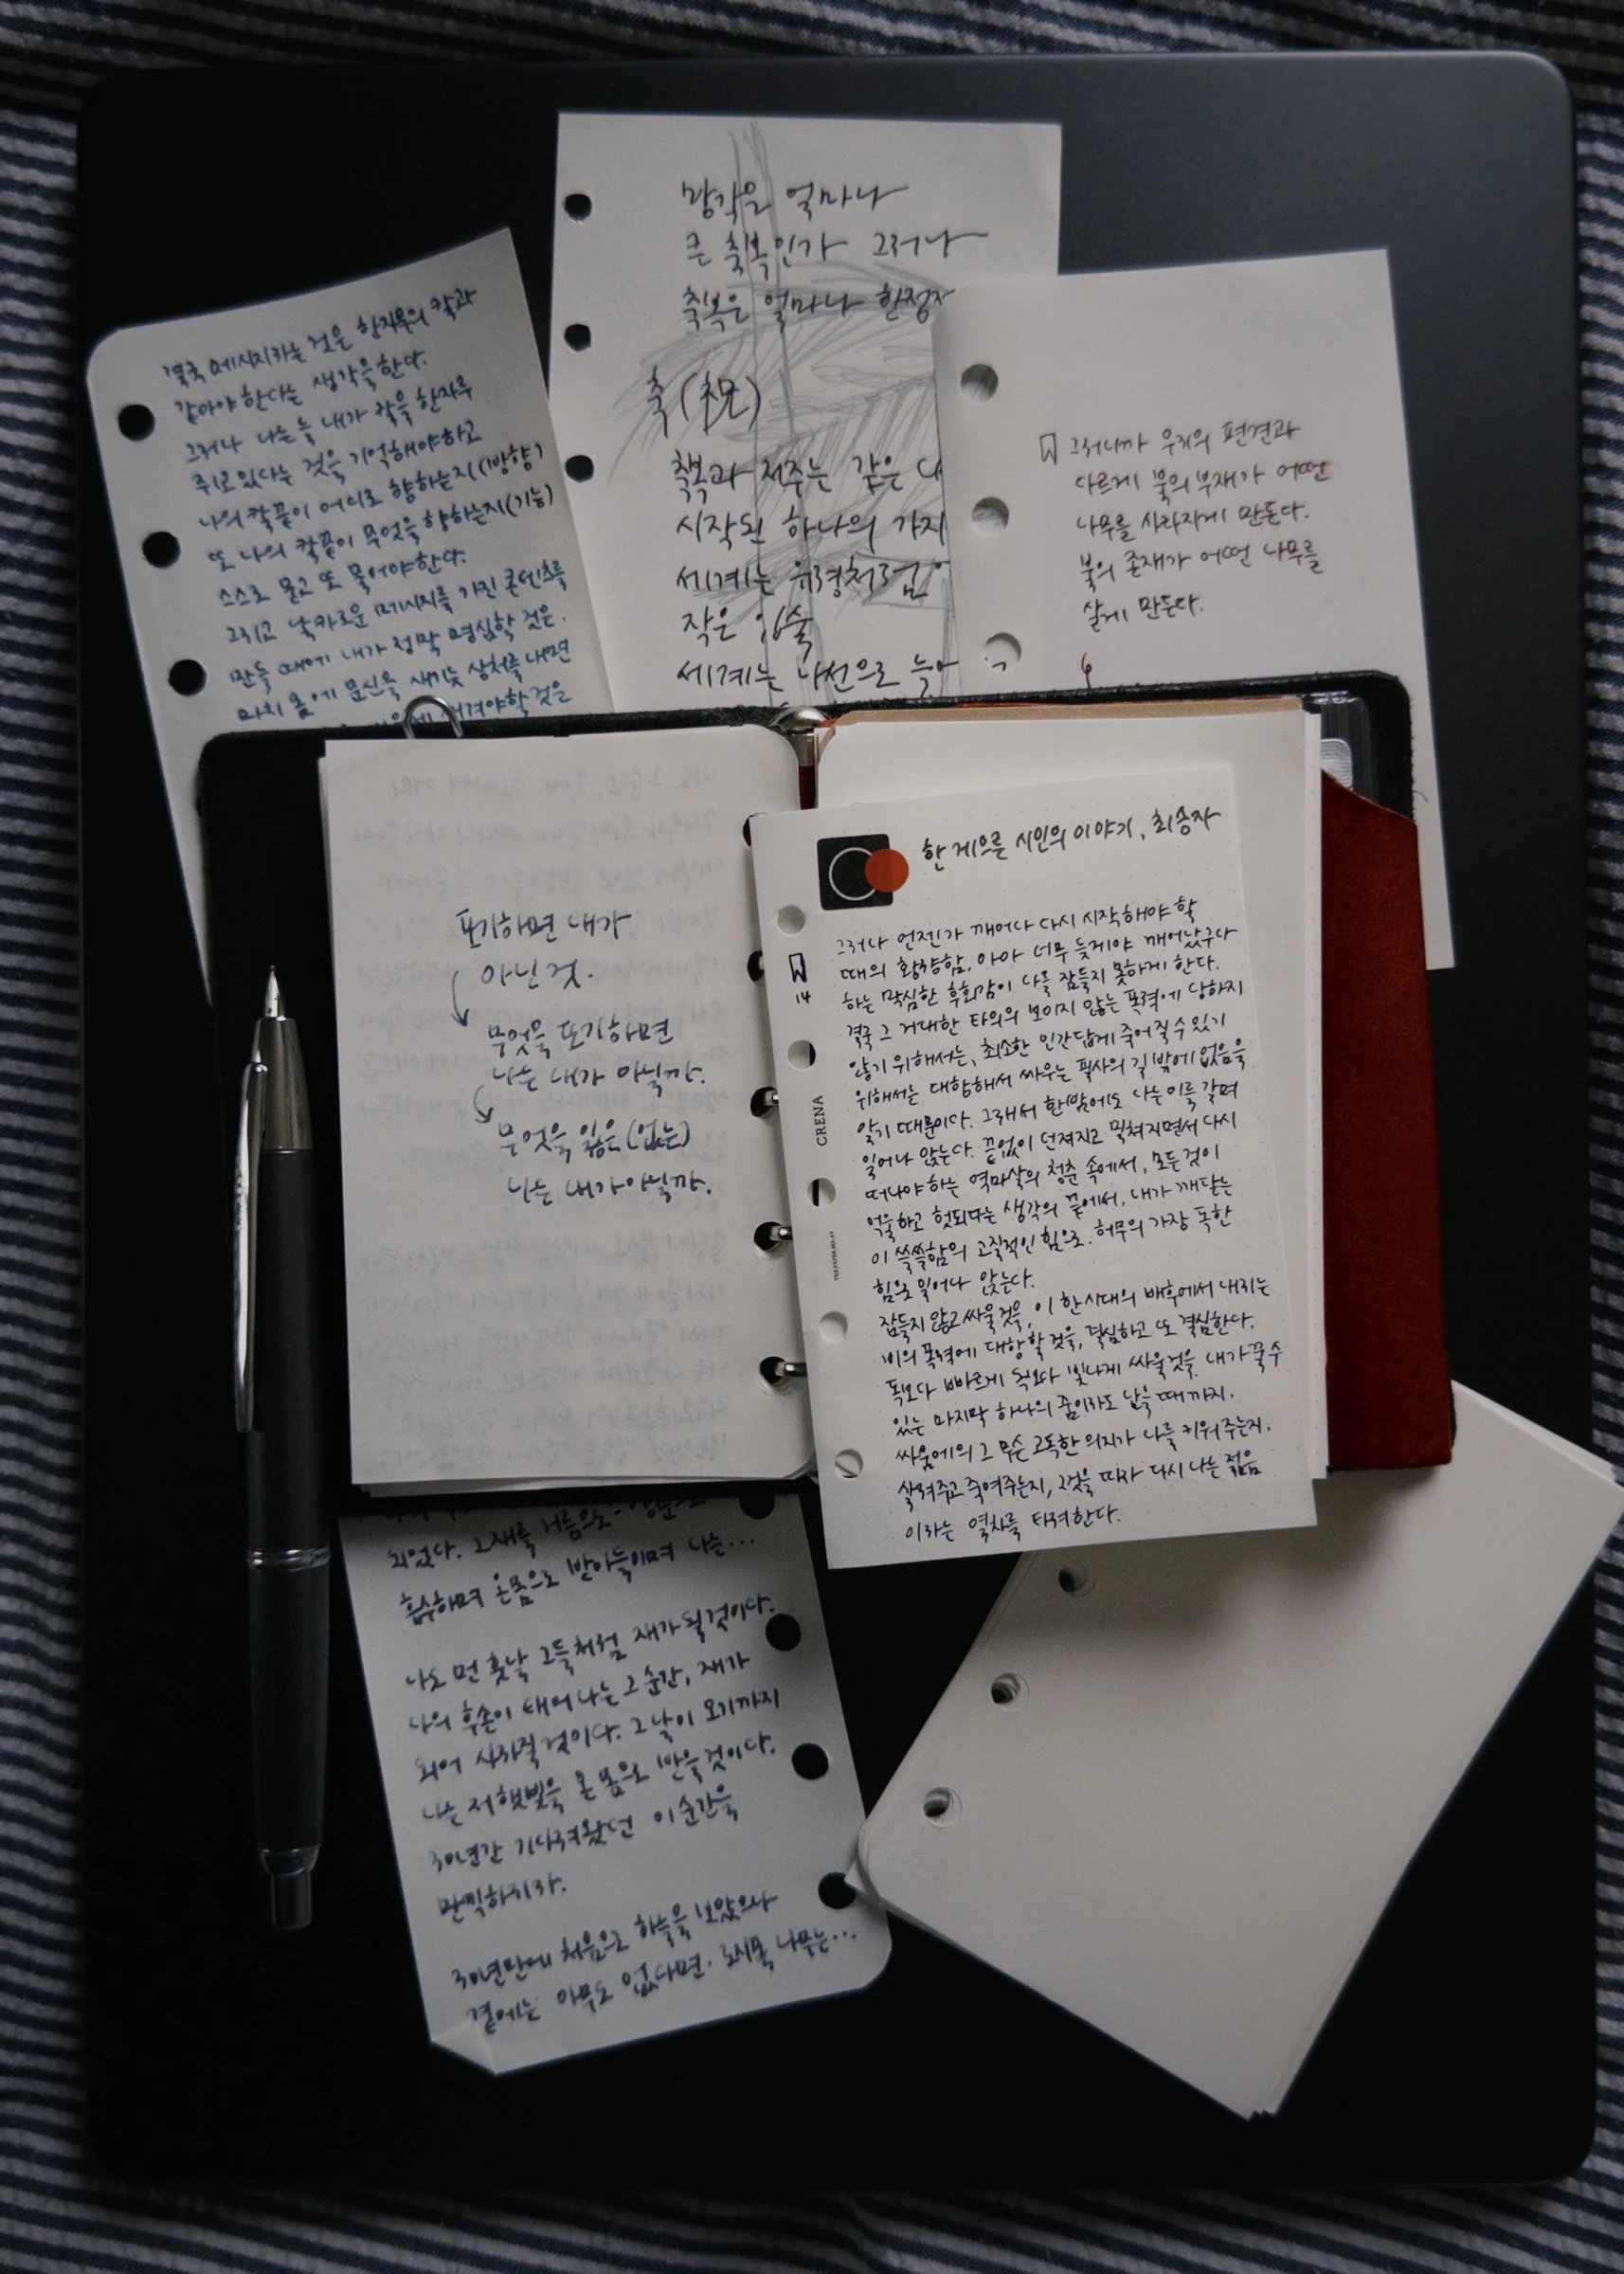 망각은 얼마나
큰 축복인가 그러나
축복은 얼마나 한정
축(초모)
축복과 저주는 같은
시작된 하나의 가지
세계는 유령처럼
작은 입술
세계는 나선으로
결국 메시지라는 것은 한자루의 칼과
같아야 한다는 생각을 한다.
그러나 나는 늘 내가 칼을 한자루
쥐고 있다는 것을 기억해야하고
나의 칼끝이 어디로 향하는지(방향)
또 나의 칼끝이 무엇을 향하는지(기능)
스스로 묻고 또 물어야한다.
그리고 날카로운 메시지를 가진 콘텐츠를
만들 때에 내가 정말 명심할 것은.
마치 몸에 문신을 새기듯 상처를 내면
겨야할 것은
그러니까 우리의 편견과
다르게 불의 부재가 어떤
나무를 사라지게 만든다.
불의 존재가 어떤 나무를
살게 만든다.
포기하면 내가
아닌 것.
무엇을 포기하면
나는 내가 아닐까.
무엇을 잃은(없는)
나는 내가 아닐까.
한 게으른 시인의 이야기, 최승자
14
CRENA
그러나 언젠가 깨어나 다시 시작해야 할
때의 황량함, 아아 너무 늦게야 깨어났구나
하는 막심한 후회감이 나를 잠들지 못하게 한다.
결국 그 거대한 타의의 보이지 않는 폭력에 당하지
않기 위해서는, 최소한 인간답게 죽어 질 수 있기
위해서는 대항해서 싸우는 필사의 길 밖에 없음을
알기 때문이다. 그래서 한밤에도 나는 이를 갈며
일어나 앉는다. 끝없이 던져지고 밀쳐지면서 다시
떠나야 하는 역마살의 청춘 속에서, 모든 것이
억울하고 헛되다는 생각의 끝에서, 내가 깨닫는
이 쓸쓸함의 고질적인 힘으로. 허무의 가장 독한
힘으로 일어나 앉는다.
잠들지 않고 싸울 것을, 이 한 시대의 배후에서 내리는
비의 폭력에 대항할 것을, 결심하고 또 결심한다.
독보다 빠르게 독보다 빛나게 싸울 것을. 내가 꿀 수
있는 마지막 하나의 꿈이라도 남을 때까지.
싸움에의 그 무슨 고독한 의지가 나를 키워주는지.
살려주고 죽여주는지, 그것을 따라 다시 나는 젊음
이라는 열차를 타려한다.
되었다. 그 재를 거름으로
흡수하며 온 몸으로 받아들이며 나는...
나도 먼 훗날 그들처럼 재가 될 것이다.
나의 후손이 태어 나는 그 순간, 재가
되어 사라질 것이다. 그 날이 오기까지
나는 저 햇빛을 온 몸으로 받을 것이다.
30년간 기다려왔던 이 순간을
만끽하리라.
30년만에 처음으로 하늘을 보았으나
곁에는 아무도 없다면. 로지폴 나무는...